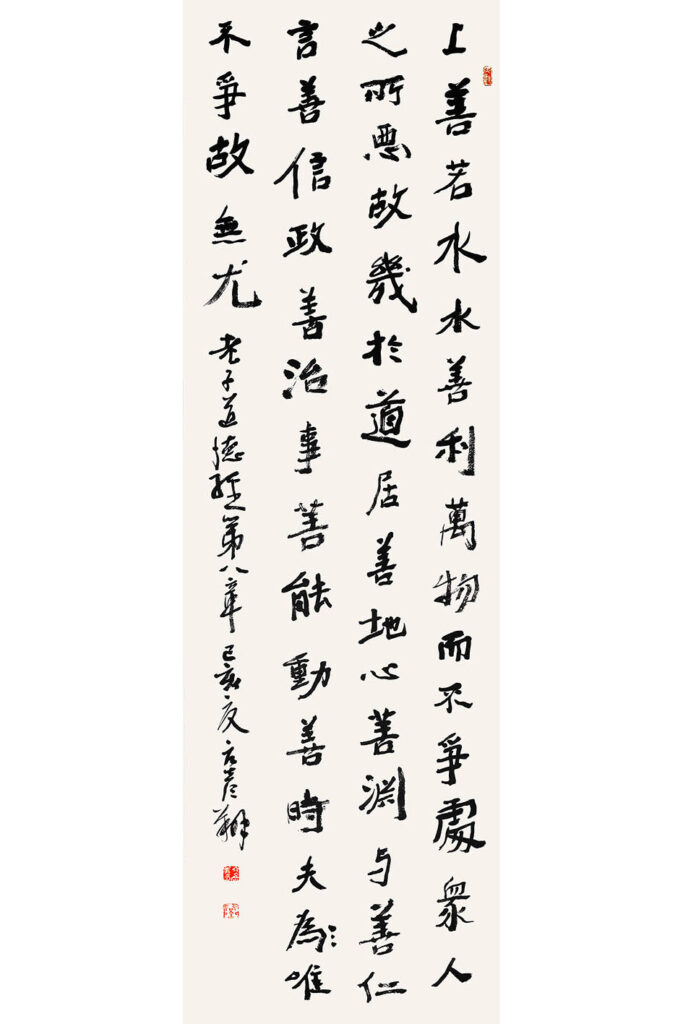 上善若水水善利萬物而不爭處衆人
之所惡故幾於道居善地心善淵与善仁
言善信政善治事善能動善時夫為唯
不爭故無尤 老子道德經第八章 己亥夏